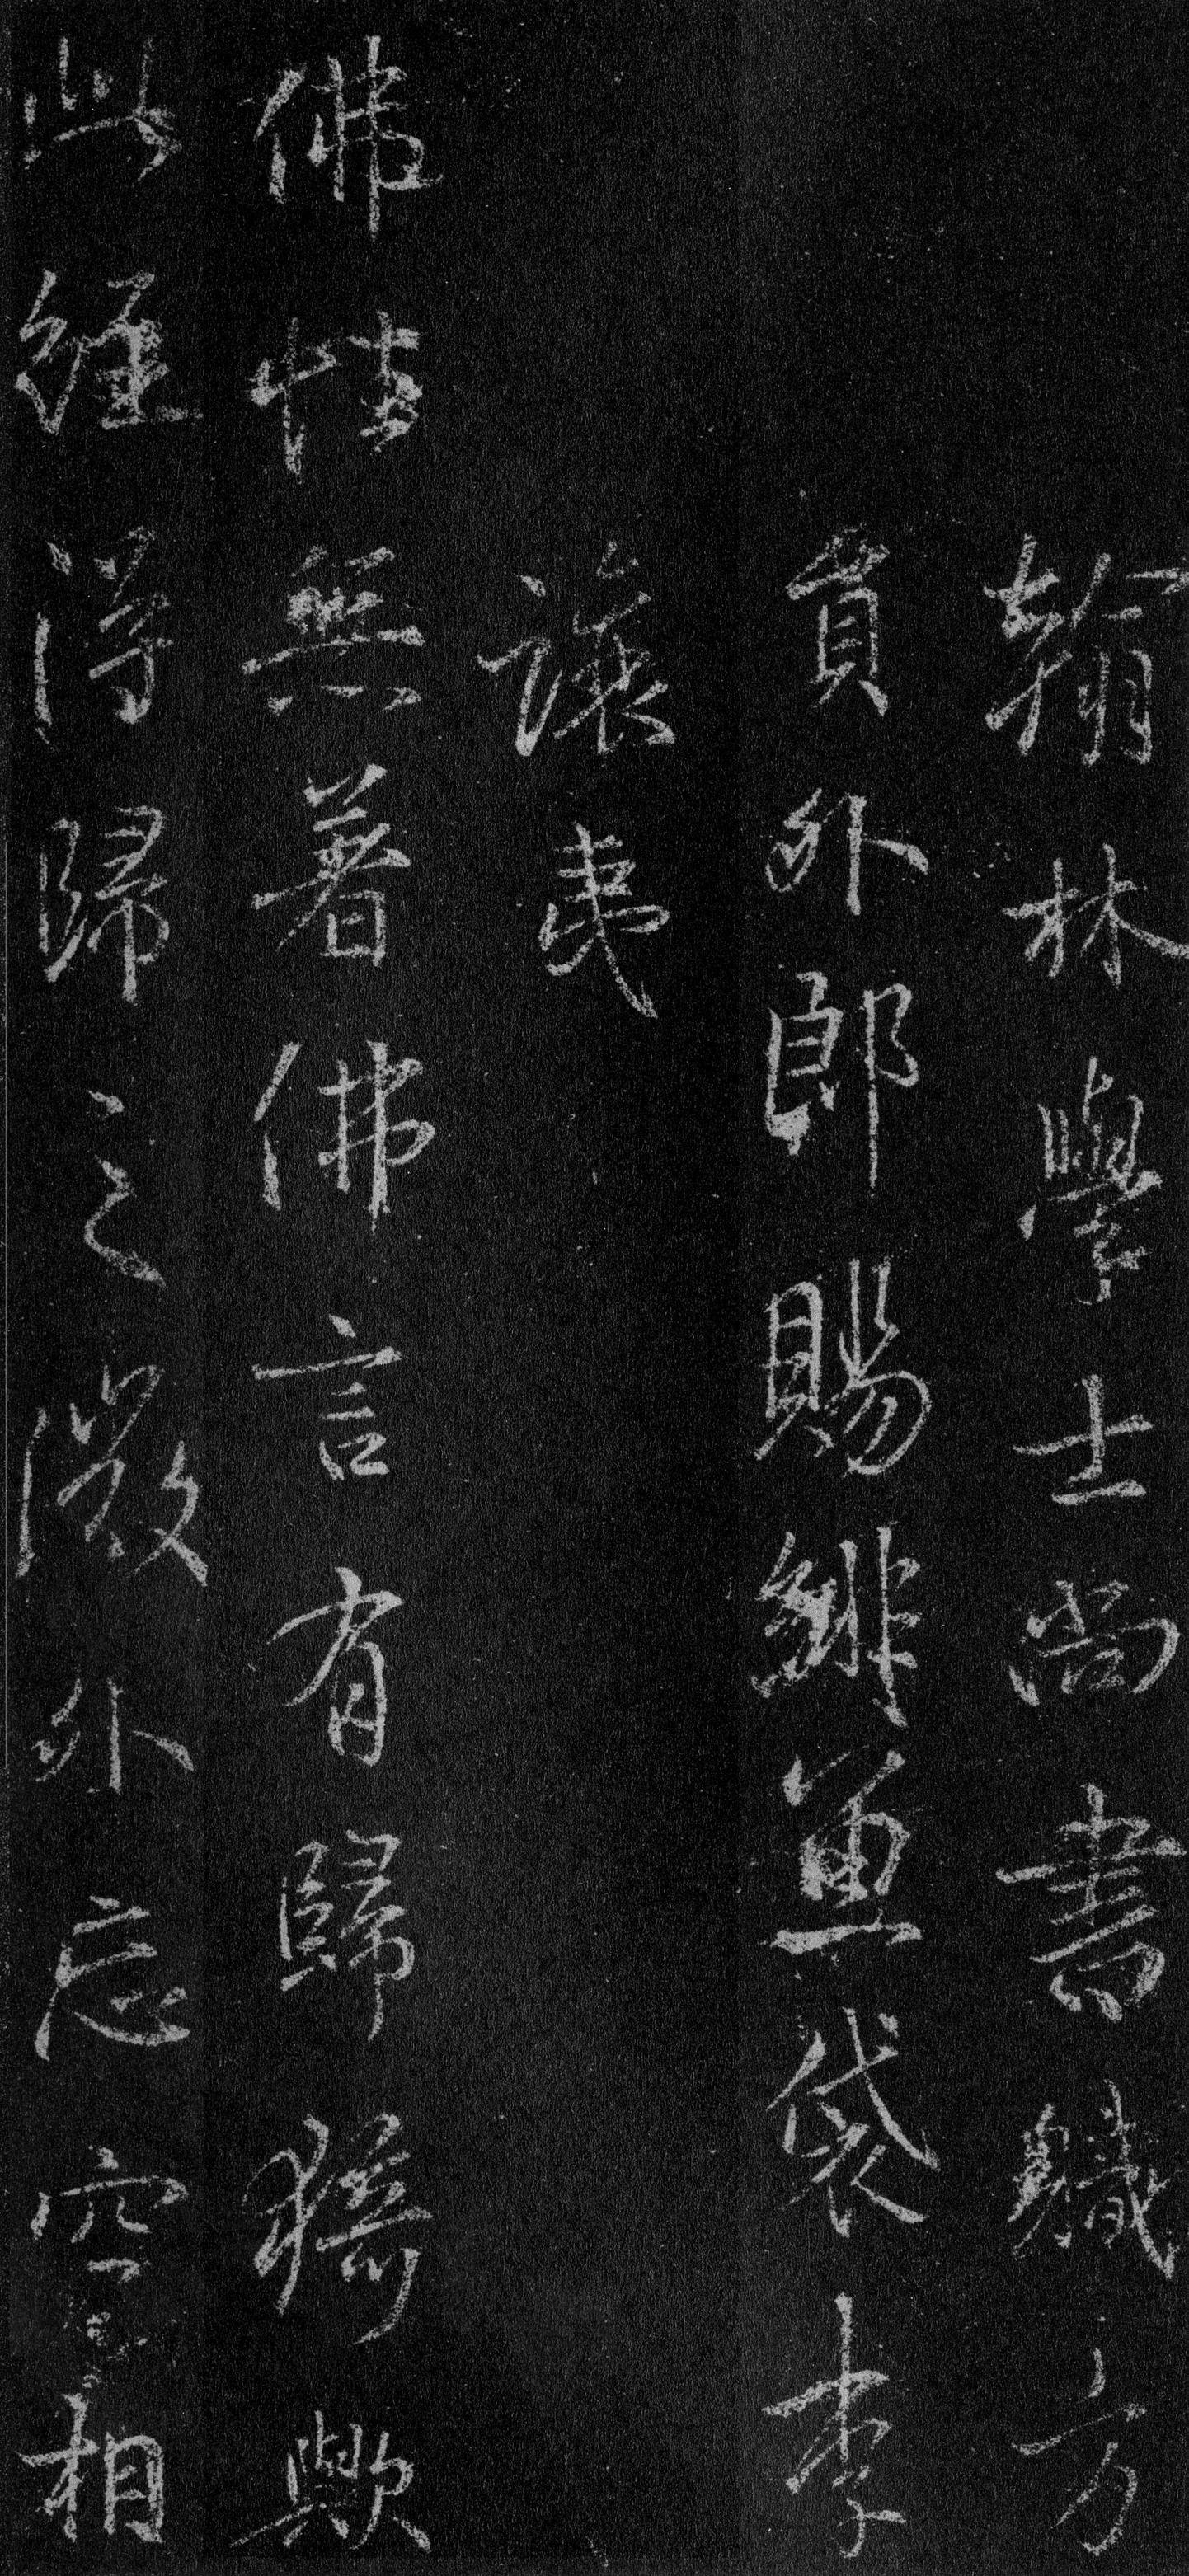 翰林學士尚書職方
員外郎賜緋魚袋李
讓夷
佛性無著佛言有歸猗歟
此經得歸之微外忘空相